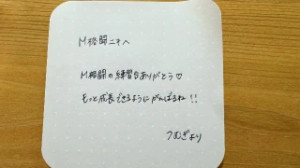 M格闘ニキへ
M格闘の練習台ありがとう♡
もっと成長できるようにがんばるね!!
つむぎより